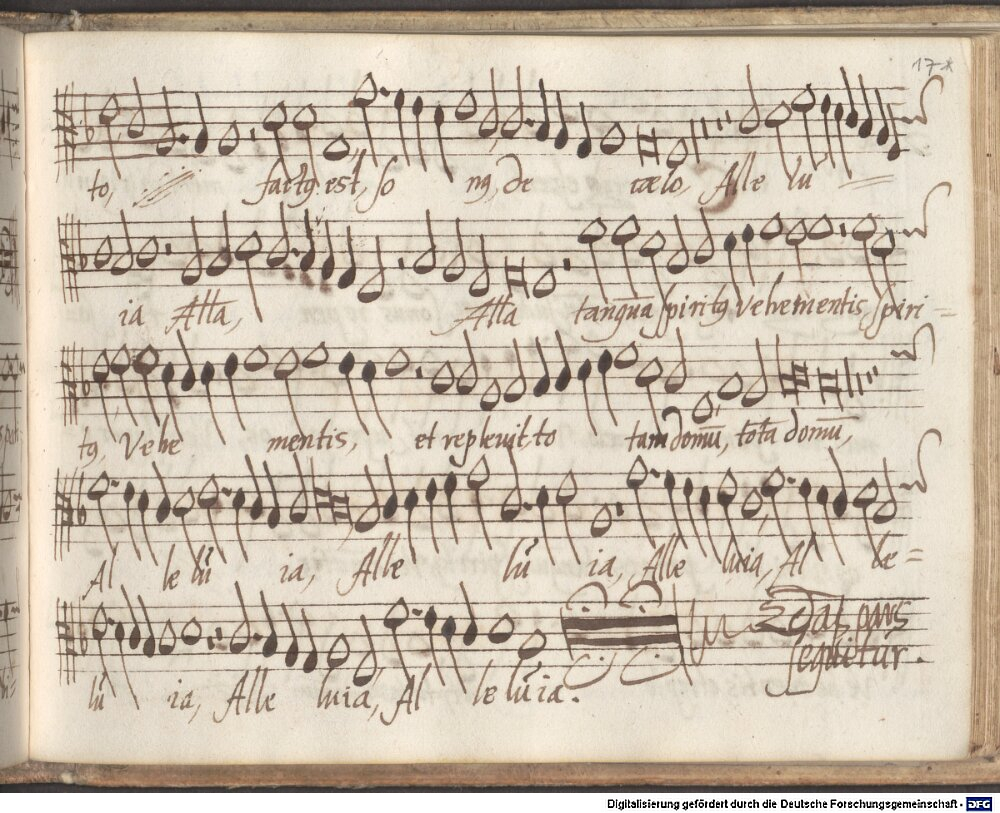 17
to, factꝯ est, so nꝯ, de cælo, Alle lu
ia Alla, Alla tanqua spiritꝯ vehementis, spiri=
tꝯ, Vehe mentis, et replevit, to tam domū, tota domū,
Al le lu ia, Alle lu ia, Alle luia, Al le=
lu ia, Alle luia, Al le lu ia.
2da pars
sequitur.
Digitalisierung gefördert durch die Deutsche Forschungsgemeinschaft - DFG